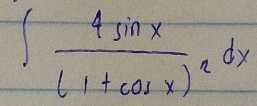 ∫ 4 sin x / (1 + cos x)² dx